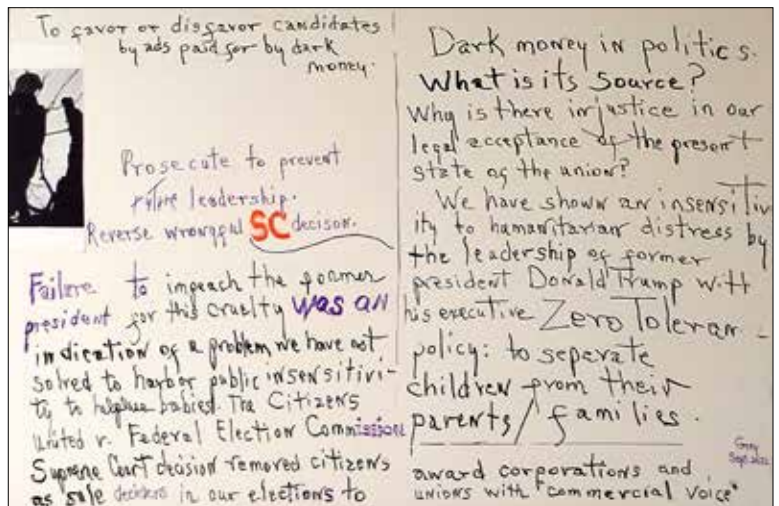 To favor or disfavor candidates
by ads paid for by dark
money.
Prosecute to prevent
future leadership.
Reverse wrongful SC decison.
Failure to impeach the former
president for this cruelty was an
indication of a problem we have not
solved to harbor public insensitivi-
ty to helpless babies. The Citizens
United v. Federal Election Commission
Supreme Court decision removed citizens
as sole deciders in our elections to
Dark money in politics.
What is its source?
Why is there injustice in our
legal acceptance of the present
state of the union?
We have shown an insensitiv
ity to humanitarian distress by
the leadership of former
president Donald Trump with
his executive Zero Toleran -
policy: to separate
children from their
parents/families.
award corporations and
unions with "commercial voice"
Sept. 2022